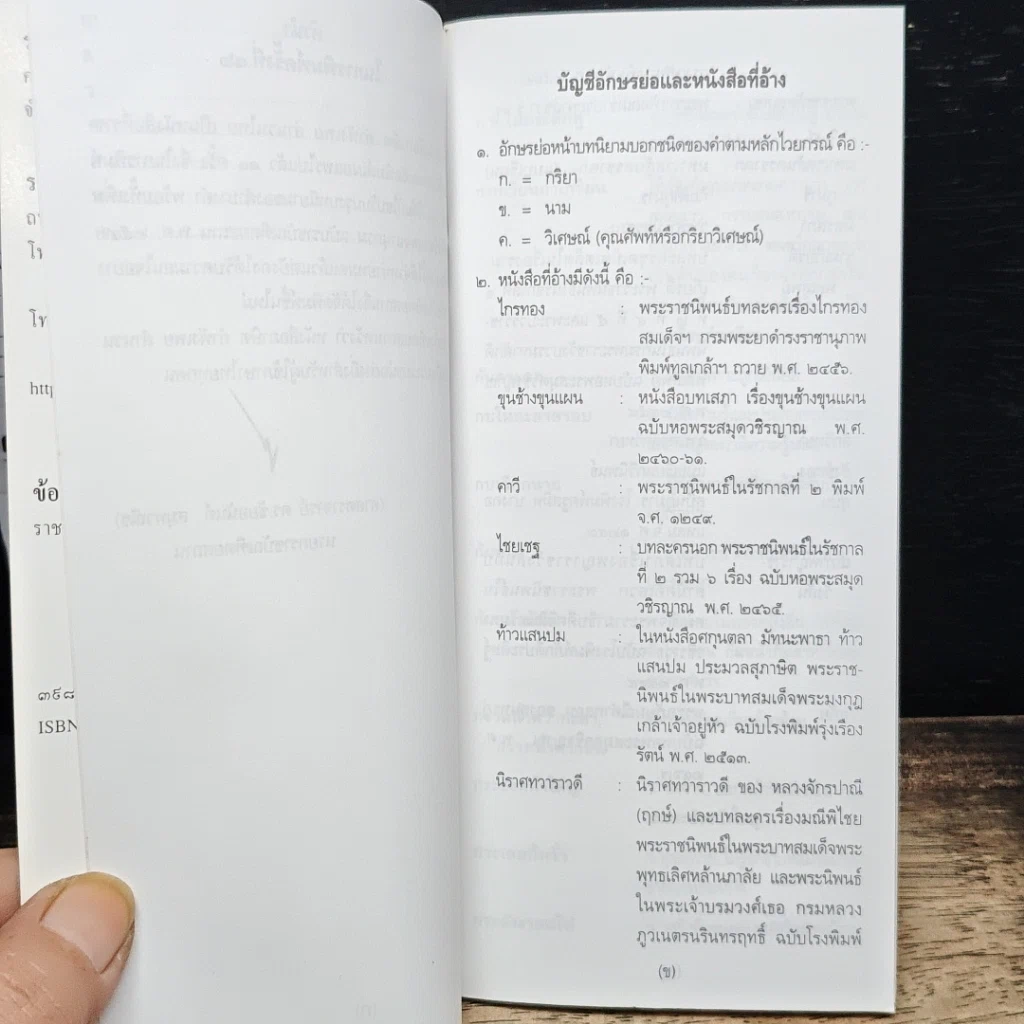 http
ข้อ
ราช
๓๙๘
ISBN
บัญชีอักษรย่อและหนังสือที่อ้าง
๑. อักษรย่อหน้าบทนิยามบอกชนิดของคำตามหลักไวยกรณ์ คือ :-
ก. = กริยา
ข. = นาม
ค. = วิเศษณ์ (คุณศัพท์หรือกริยาวิเศษณ์)
๒. หนังสือที่อ้างมีดังนี้ คือ :-
ไกรทอง : พระราชนิพนธ์บทละครเรื่องไกรทอง
สมเด็จฯ กรมพระยาดำรงราชานุภาพ
พิมพ์ทูลเกล้าฯ ถวาย พ.ศ. ๒๔๕๖.
ขุนช้างขุนแผน : หนังสือบทเสภา เรื่องขุนช้างขุนแผน
ฉบับหอพระสมุดวชิรญาณ พ.ศ.
๒๔๖๐-๖๑.
คาวี : พระราชนิพนธ์ในรัชกาลที่ ๒ พิมพ์
จ.ศ. ๑๒๔๙.
ไชยเชฐ : บทละครนอก พระราชนิพนธ์ในรัชกาล
ที่ ๒ รวม ๖ เรื่อง ฉบับหอพระสมุด
วชิรญาณ พ.ศ. ๒๔๖๕.
ท้าวแสนปม : ในหนังสือศกุนตลา มัทนะพาธา ท้าว
แสนปม ประมวลสุภาษิต พระราช-
นิพนธ์ในพระบาทสมเด็จพระมงกุฎ
เกล้าเจ้าอยู่หัว ฉบับโรงพิมพ์รุ่งเรือง
รัตน์ พ.ศ. ๒๕๑๓.
นิราศทวาราวดี : นิราศทวาราวดี ของ หลวงจักรปาณี
(ฤกษ์) และบทละครเรื่องมณีพิไชย
พระราชนิพนธ์ในพระบาทสมเด็จพระ
พุทธเลิศหล้านภาลัย และพระนิพนธ์
ในพระเจ้าบรมวงศ์เธอ กรมหลวง
ภูวเนตรนรินทรฤทธิ์ ฉบับโรงพิมพ์
(ข)